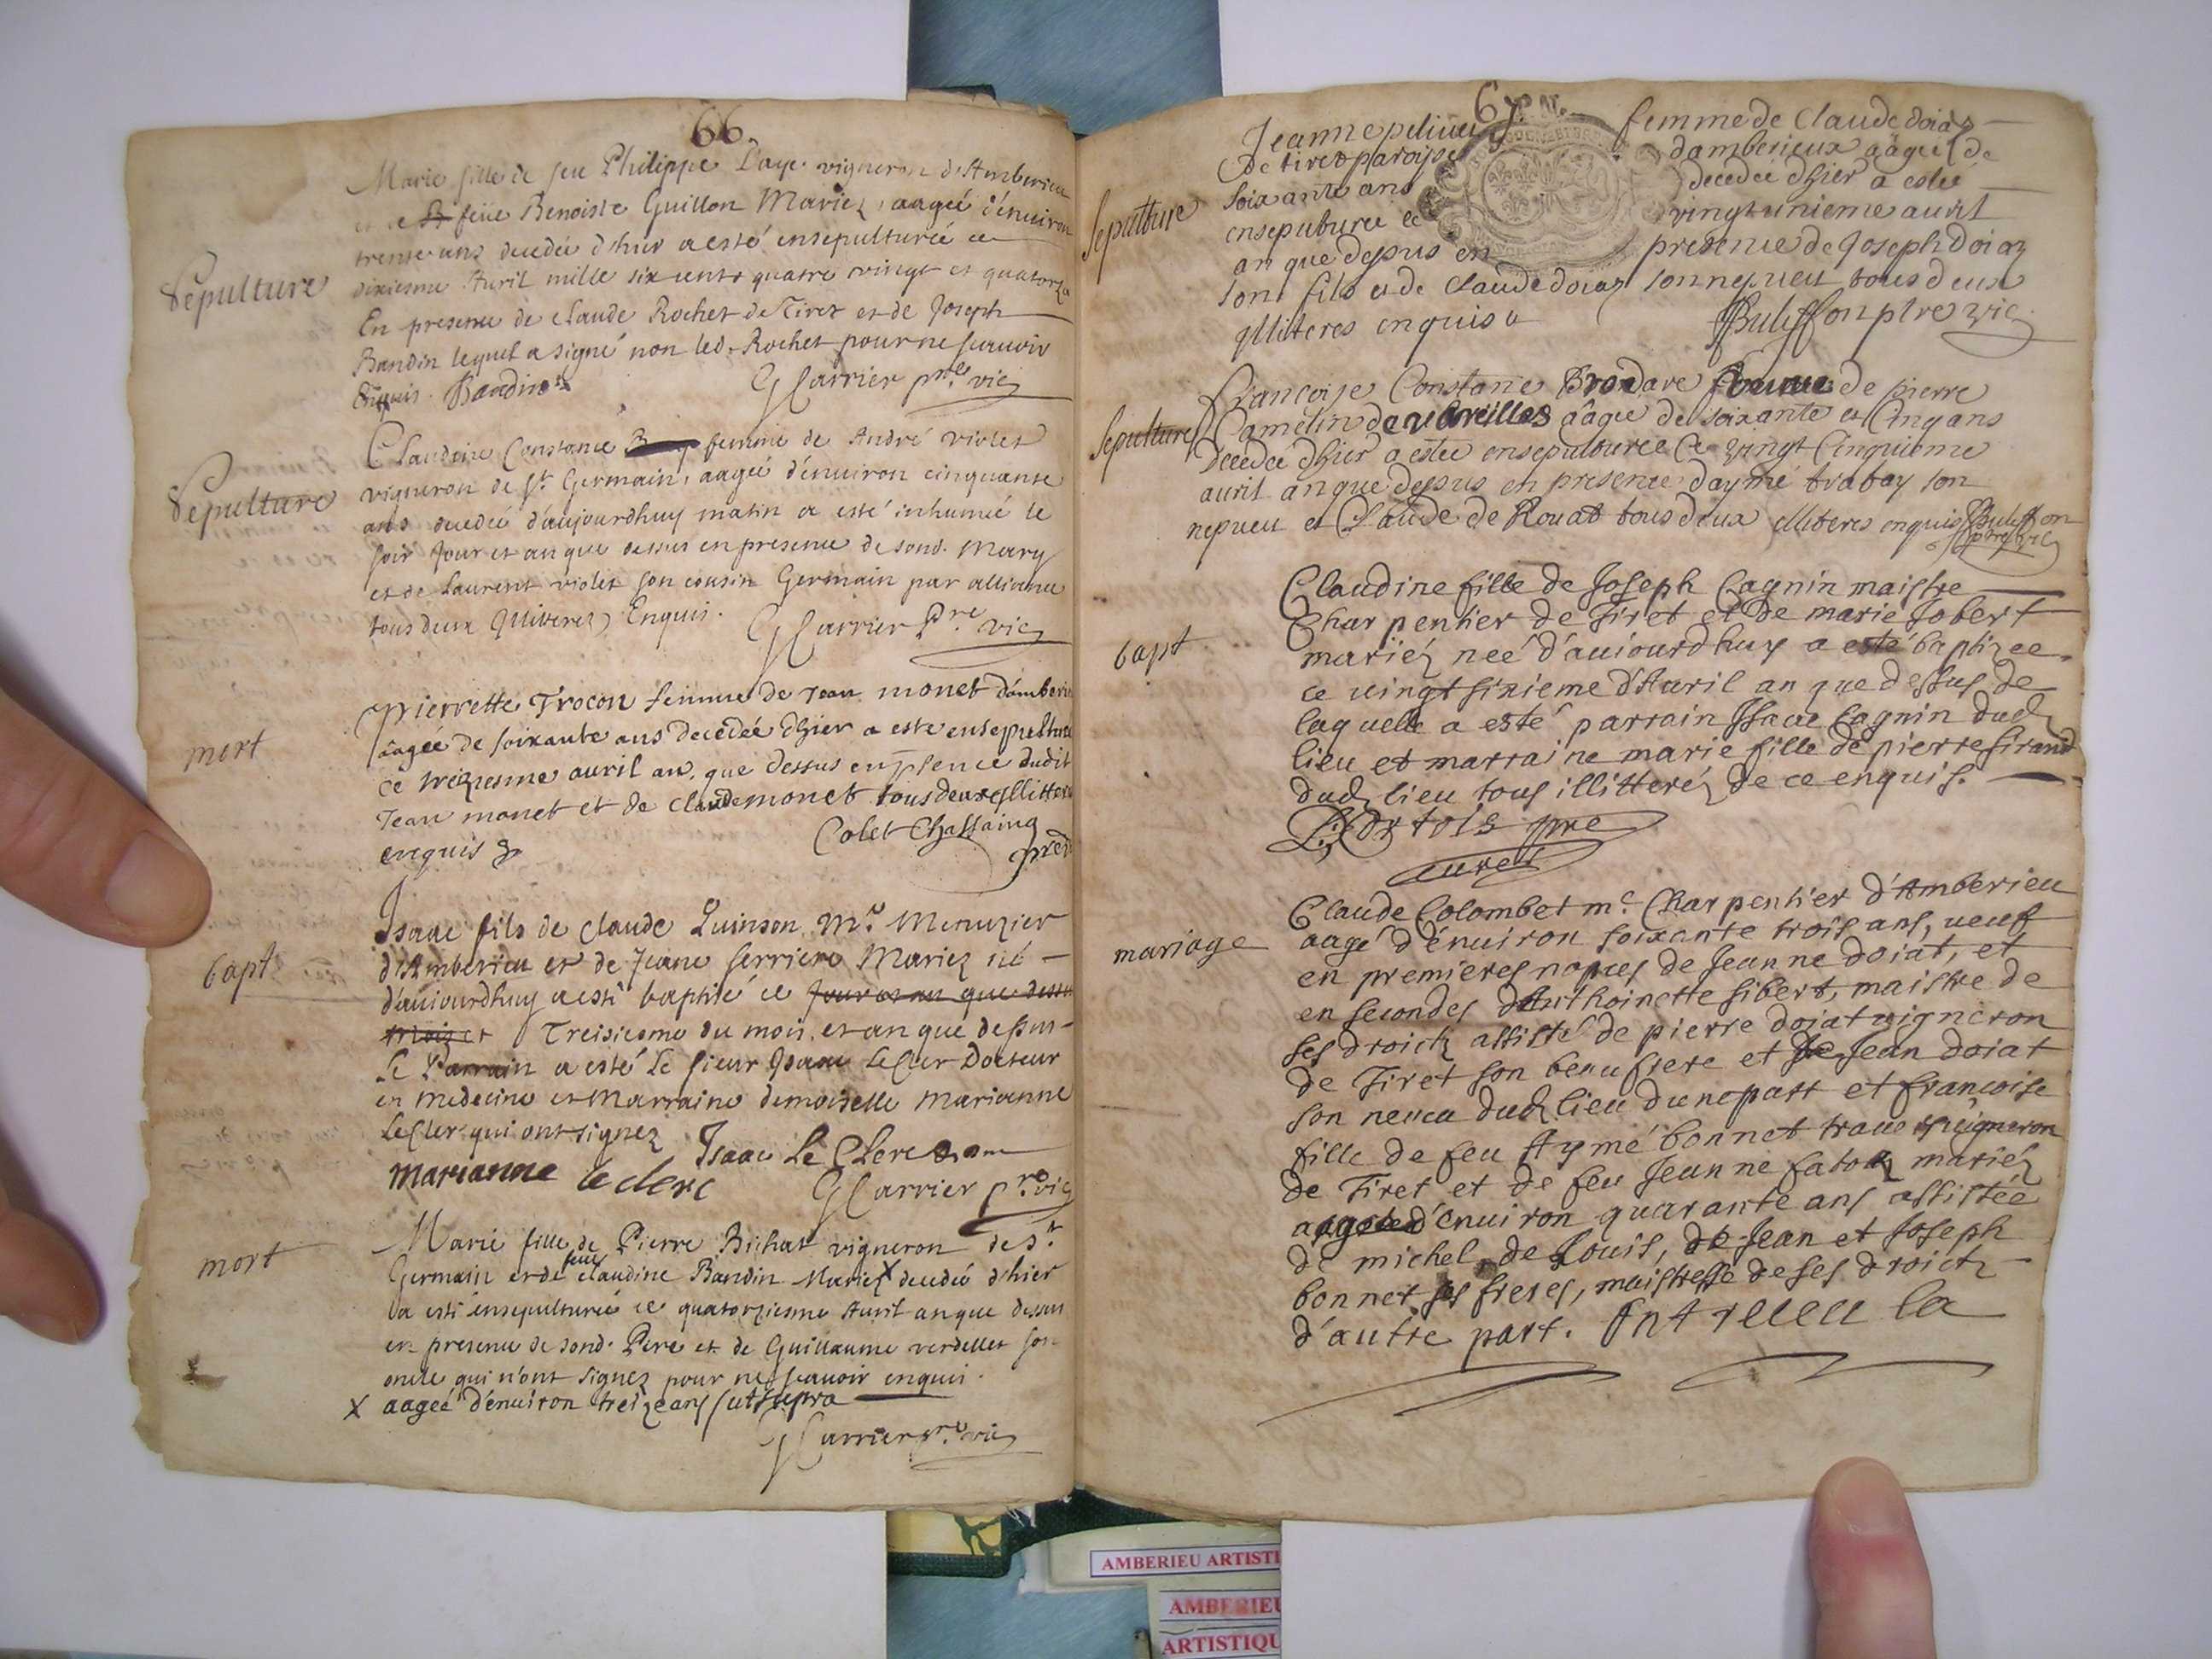 66
Marie fille de feu Philippe vigneron d'Amberieu
et de feüe Benoiste Guillon Mariez, aagée d'enuiron
trente ans decedée d'hier a esté ensepulturée ce
Sepulture
dixiesme Auril mille six cents quatre vingt et quatorze
En presence de Claude Rochet de Tiret et de Joseph
Bandin lequel a signé non led. Rochet pour ne scauoir
Enquis. Bandin G Carrier pre vic
Claudine Constance femme de André violet
Sepulture
vigneron de St Germain, aagée d'enuiron cinquante
ans decedée d'aujourdhuy matin a esté inhumée le
soir Jour et an que dessus en presence de sond. Mary
et de Laurent violet son cousin Germain par alliance
tous deux Illiterez Enquis. G Carrier Pre vic
pierrette Trocon femme de Jean monet d'amberieu
mort
aâgée de soixante ans decedée dhier a este ensepulturée
ce treiziesme auril an que dessus en psence dudit
Jean monet et de claude monet tous deux Illitteres
enquis Colet Chassaing
Isaac fils de Claude Quinson Me Menuzier
bapt
d'Amberieu et de Jeane ferriere Mariez né
d'aujourdhuy a esté baptisé ce Jour et an que dessus
mois et Treisiesme du mois, et an que dessus
Le Parrain a esté Le sieur Isaac LeClerc Docteur
en medecine et Marraine demoiselle Marianne
LeClerc qui ont signez Isaac Le Clerc
marianne le clerc G Carrier pre vic
mort
Marie fille de Pierre Bichat vigneron de St
Germain et de feüe Claudine Bandin Mariez X decedée d'hier
a esté ensepulturée ce quatorziesme Auril an que dessus
en presence de sond. Pere et de Guillaume verdellet son
oncle qui n'ont signez pour ne scauoir enquis.
X aagée d'enuiron treize ans ut supra
G Carrier pre vic
67
Jeanne femme de Claude doiat
de tiret paroisse d'amberieux aâgée de
Sepulture
soixante ans decedée dhier a estée
ensepulturee ce vingt unieme auril
an que desus en presence de Joseph doiaz
son fils et de Claude doiaz son nepueu tous deux
illiteres enquis Buliffon ptre vic
francoise Constance Brondare femme de pierre
Sepulture
Camelin de vareilles aâgée de soixante et Cinq ans
decedée dhier a estée ensepulturée Ce vingt Cinquieme
auril an que desus en presence daymé trabay son
nepueu et Claude de Rouat tous deux illiteres enquis Buliffon
ptre vic
Claudine fille de Joseph Cagnin maistre
Charpentier de Tiret et de marie Jobert
bapt
mariéz neé d'auiourdhuy a esté baptizee
ce uingt sixieme d'Auril an que dessus de
laquelle a esté parrain Isaac Cagnin dud
lieu et marraine marie fille de pierre sirand
dud lieu tous illitteréz de ce enquis.
pre
curé
Claude Colombet me Charpentier d'Amberieu
mariage
aagé d'enuiron soixante trois ans, ueuf
en premieres nopces de Jeanne doiat, et
en secondes d'Anthoinette sibert, maistre de
ses droictz assisté de pierre doiat uigneron
de Tiret son beaufrere et Jean doiat
son neueu dud lieu dune part et francoise
fille de feu Aymé bonnet uigneron
de Tiret et de feu Jeanne mariéz
aagée d'enuiron quarante ans assistée
de michel, de Louis, de Jean et Joseph
bonnet ses freres, maistresse de ses droictz
d'autre part. Ont receu la
AMBERIEU ARTISTI
AMBERIEU
ARTISTIQU